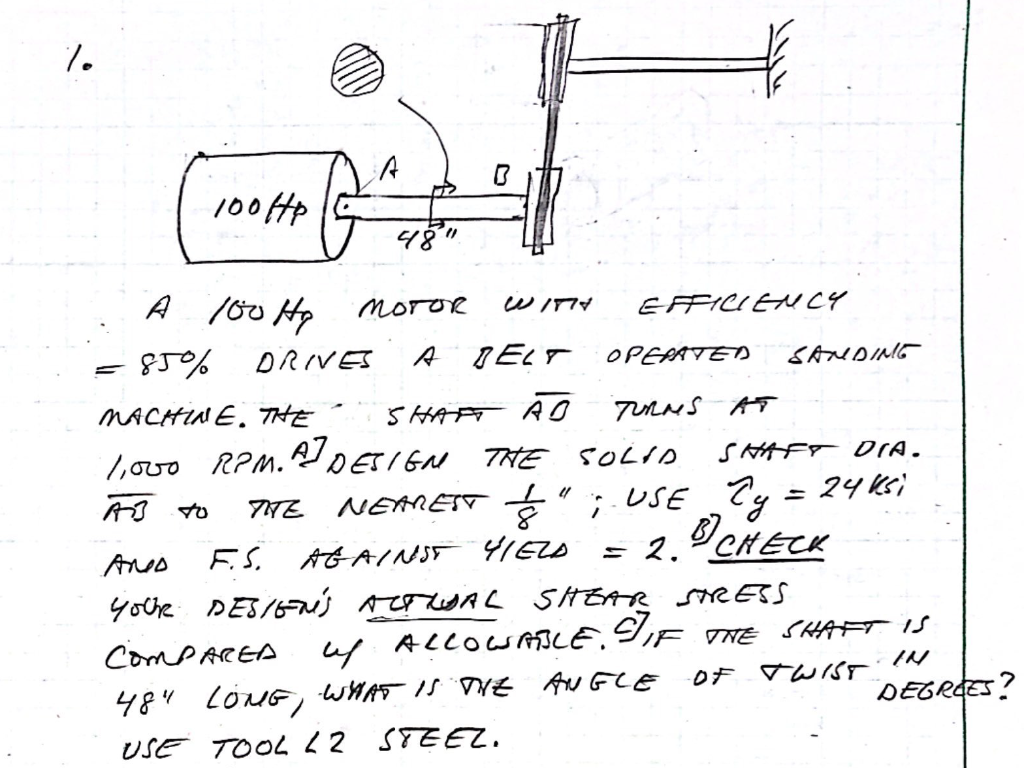 1.
A
B
100 Hp
48"
A 100 Hp MOTOR WITH EFFICIENCY
= 85% DRIVES A BELT OPERATED SANDING
MACHINE. THE SHAFT AB TURNS AT
1,000 RPM. A] DESIGN THE SOLID SHAFT DIA.
AB TO THE NEAREST 1/8" ; USE τy = 24 KSi
AND F.S. AGAINST YIELD = 2. B] CHECK
YOUR DESIGN'S ACTUAL SHEAR STRESS
COMPARED w/ ALLOWABLE. C] IF THE SHAFT IS
48" LONG, WHAT IS THE ANGLE OF TWIST IN
DEGREES?
USE TOOL L2 STEEL.